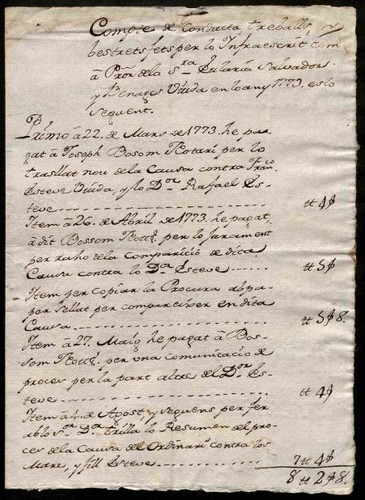 Compte de Conducta treballs, y
bestrets fets per lo Infraescrit com
á Pr̃or de la Sra. Eularia Salvador
y Benages Viuda en lo any 1773. es lo
seguent.
Primo á 22. de Mars de 1773. he pa-
gat á Joseph Bosom Notari per lo
trasllat nou de la Causa contra Franco.
Esteve Viuda, y lo Dor. Rafael Es-
teve ------------ tt 4 ß
Item á 26. de Abril de 1773. he pagat,
á dit Bossom Notti. per lo Jurament
per raho de la Comparicio de dita
Causa contra lo Dr. Esteve -- tt 5 ß
Item per copiar la Procura ab pa-
per sellat per comparèixer en dita
Causa ------------ tt 5 ß 8.
Item á 27. Maig he pagat á Bos-
som Notti. per una comunicacio de
proces per la part altre del Dor. Es-
teve ------------ tt 4 ß
Item á 4. de Agost, y seguens per fer
ab lo Sr. Dr. Trilla lo Resumen del pro-
ces de la Causa del Ordinari contra los
Mare, y fill Esteve -------- 7 tt 4 ß
8 tt 2 ß 8.